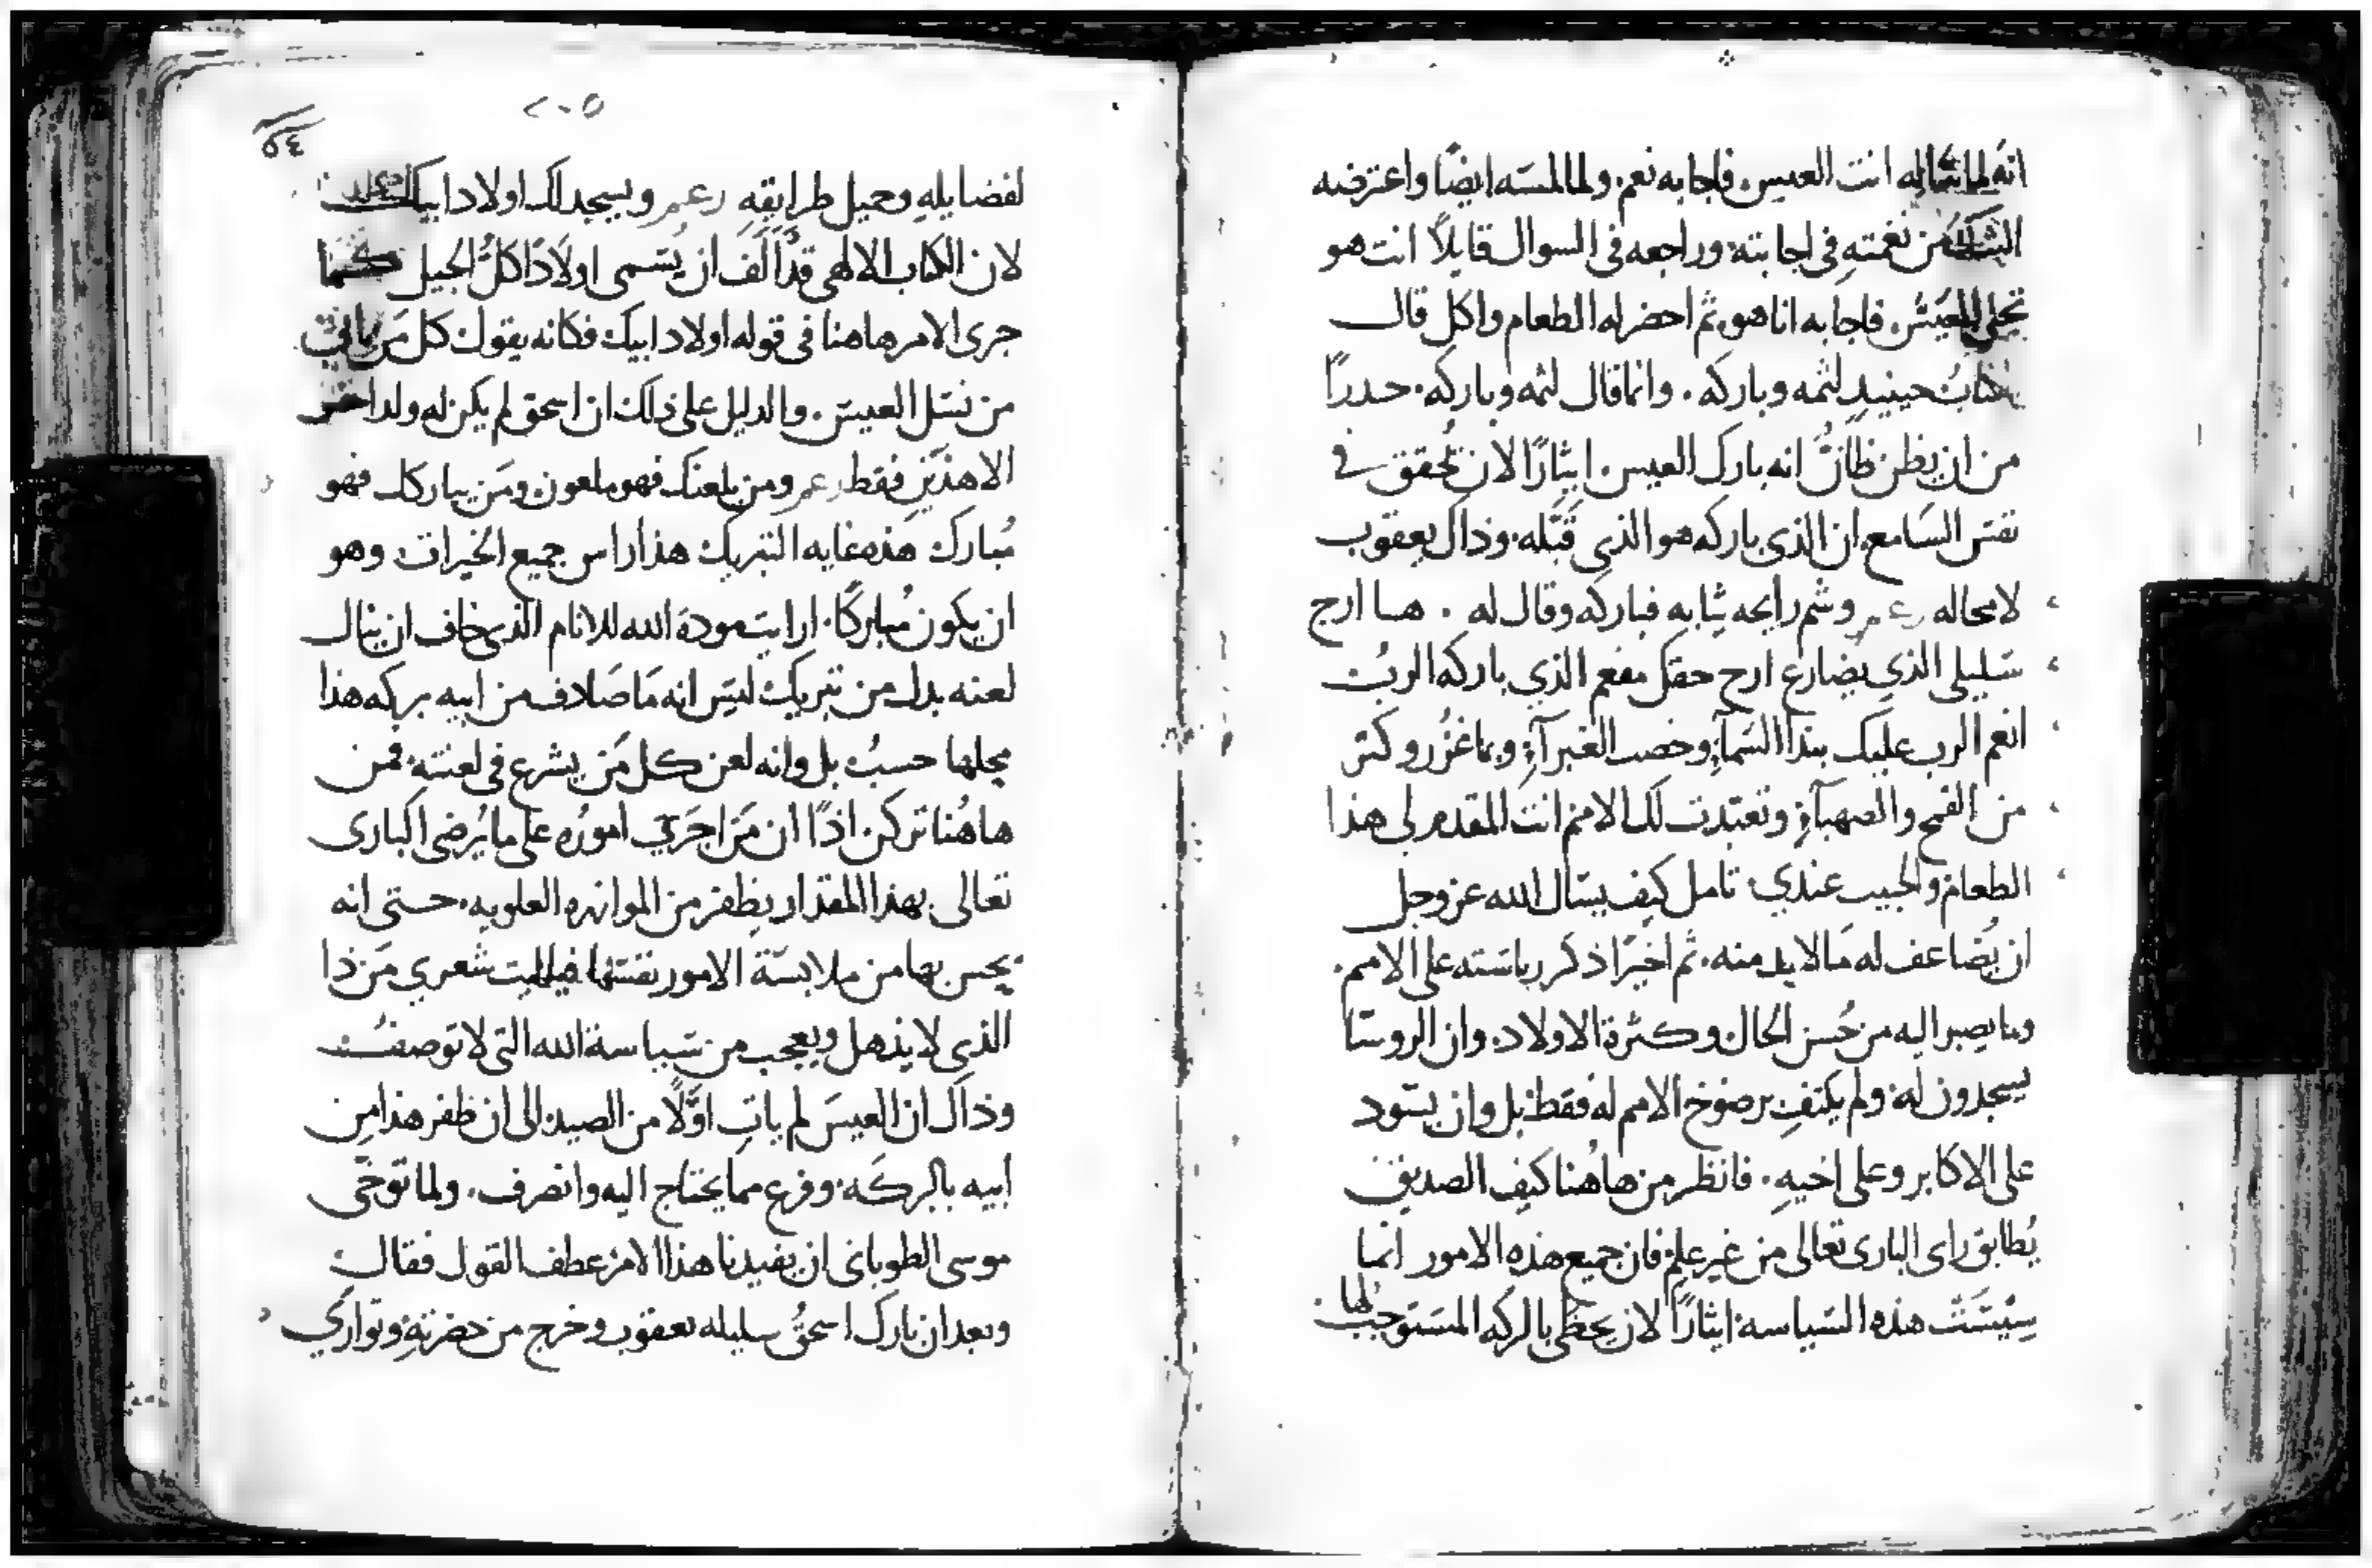 انه لما ساله انت العيس. فاجابه نعم. ولما لمسه ايضًا واعترضه
الشك من نغمته في اجابته. وراجعه في السوال قايلاً انت هو
نجلي العيس. فاجابه انا هو. ثم احضر له الطعام واكل قال
الكتابُ حينيدٍ لثمه وباركه. وانما قال لثمه وباركه. حدرًا
من ان يظن ظانٌ انه بارك العيس. ايثارًا لان تحقق في
نفس السامع ان الذي باركه هو الذي قَبّله. وذاك يعقوب
لا محاله رعم وشم رايحه ثيابه فباركه وقال له. ها ارج
سليلي الذي يضارع ارج حقل مفعم الذي باركه الربُ
انعم الرب عليك بندا السَمآءِ وخصب الغبرآءِ وبما غزُر وكثر
من القمح والصهبآءِ وتعبّدت لك الامم انت المقدم لي هذا
الطعام والحبيب عندي. تامل كيف يسال الله عز وجل
ان يُضاعف له مَا لا بد منه. ثم اخيرًا ذكر رياسته على الامم.
وما يصير اليه من حُسن الحال وكثرة الاولاد. وان الروسا
يسجدون له. ولم يكتفِ برضوخ الامم له فقط. بل وان يسود
على الاكابر وعلى اخيهِ. فانظر من هاهُنا كيف الصديق
يُطابق راى البارى تعالى من غير علمٍ فان جميع هذه الامور انما
سِيْسَتْ هذه السياسه. ايثارًا لان يحظى بالبركه المستوجبُ لها
٢٠٥
٥٤
لفضايلهِ وجميل طرايقِهِ رعم ويسجد لك اولاد ابيك
لان الكتاب الالهي قد أَلَفَ ان يُسمى اولادًا كلُّ الجيل كما
جرى الامر هاهنا في قوله اولاد ابيك فكانه يقول كل مَن ياتي
من نسل العيس. والدليل على ذلك ان اسحق لم يكن له ولد اخر
الا هذَين فقط رعم ومن يلعنك فهو ملعون ومَن يباركك فهو
مُبارك هذه غايه التبريك هذا راس جميع الخيرات. وهو
ان يكون مُباركًا. ارايت مودة الله للانام الذي خاف ان ينال
لعنه بدل من تبريك ليس انه مَا صَادف من ابيه بركه هذا
محلها حسبُ بل وانه لعن كل مَن يشرع في لعنته. فمن
هاهُنا تركن اذًا ان مَن اجرَي امورُه على ما يُرضى البارى
تعالى بهذا المقدار يظفر من الموازره العلويه. حتى انه
يحس بها من ملابسَة الامور نفسها. فيا ليت شعري مَن ذا
الذي لا يذهل ويعجب من سياسة الله التى لا توصفُ
وذاك ان العيسَ لم ياتِ اوّلًا من الصيد. الى ان ظفر هذا من
ابيه بالبركَه. وفرغ مما يحتاج اليه وانصرف. ولما توخّى
موسى الطوباني ان يفيدنا هذا الامر عطف القول فقال
وبعد ان بارك اسحقُ سليله يعقوب وخرج من حضرتهِ وتواري